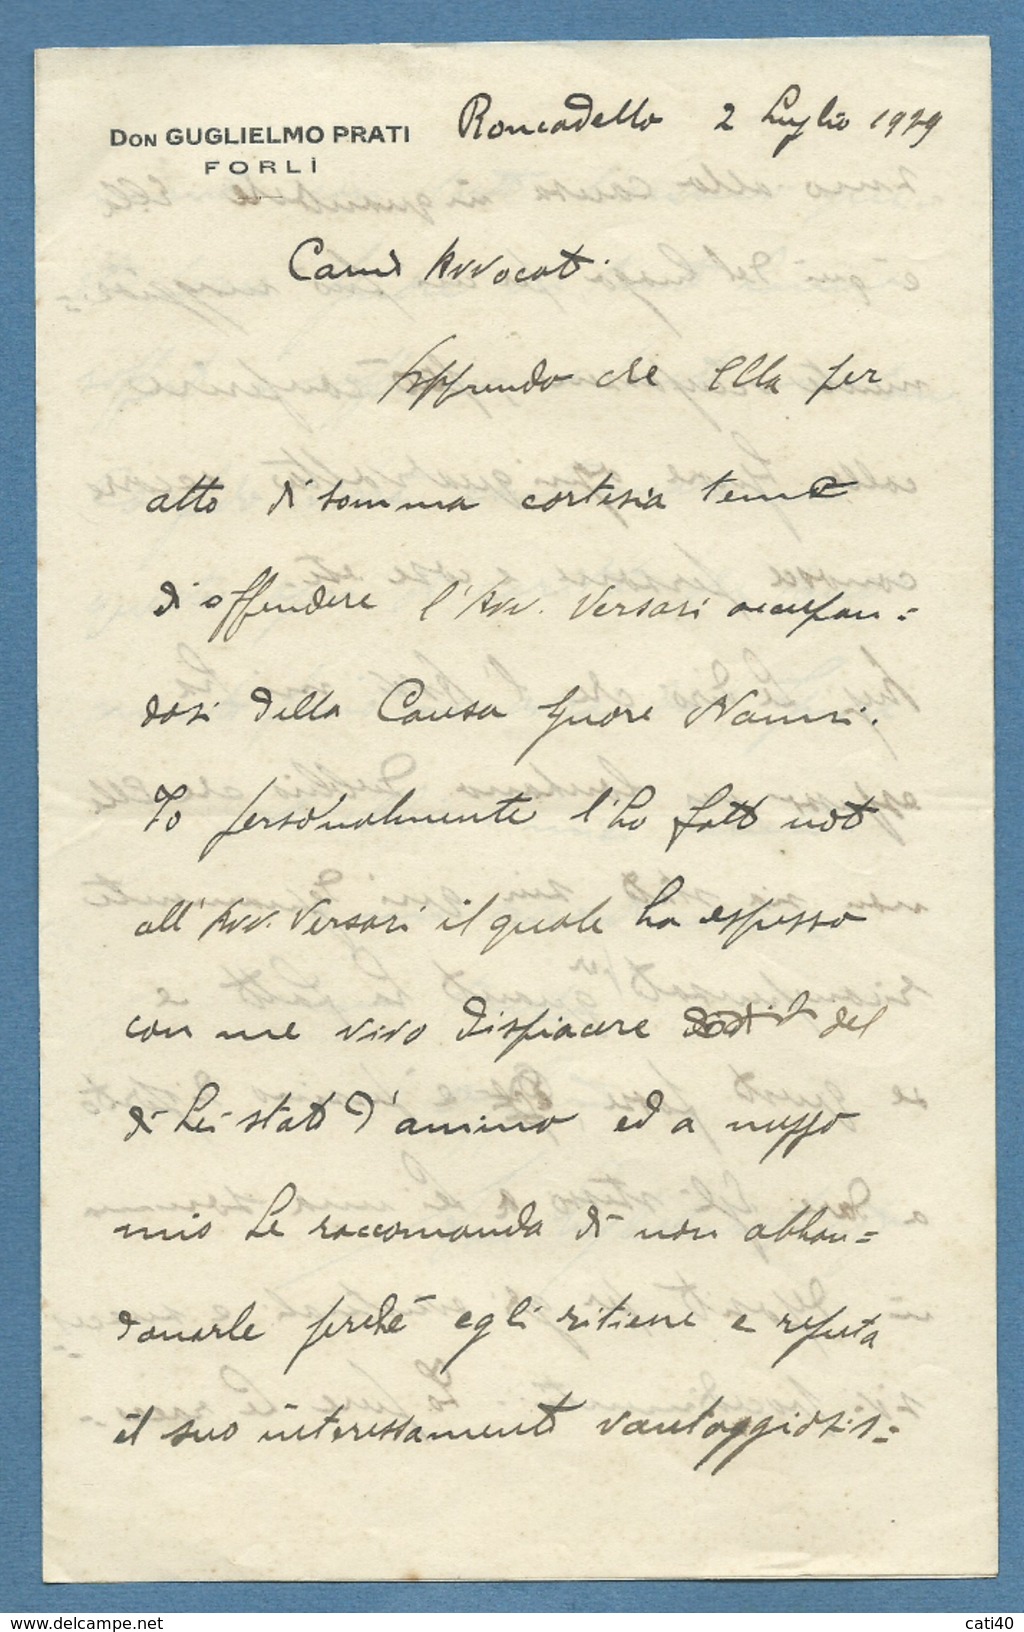 DON GUGLIELMO PRATI
FORLÌ
Roncadello 2 Luglio 1929
Avvocato
Apprendo che Ella per
atto di somma cortesia teme
di offendere l'Avv. Versari occupan=
dosi della Causa Nanni.
Io personalmente l'ho fatto noto
all'Avv. Versari il quale ha espesso
con me vivo dispiacere del
di Lei stato d'animo ed a mezzo
mio Le raccomanda di non abban=
donarle perché egli ritiene e reputa
il suo interessamento vantaggiosis=
www.delcampe.net
cati40